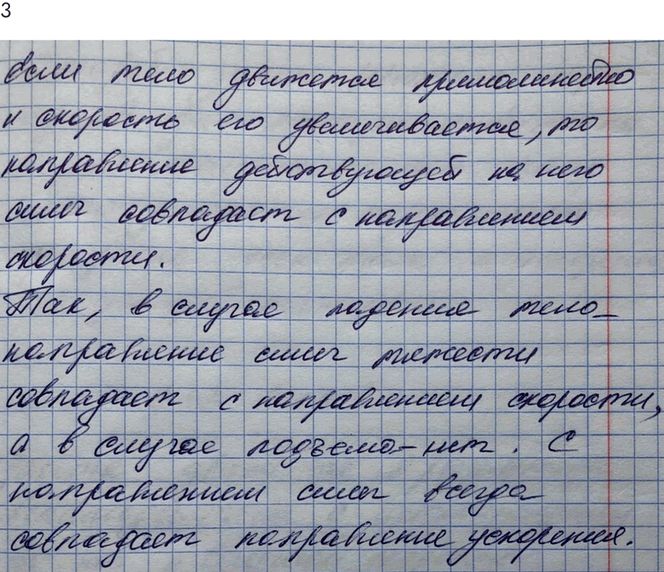 3
Если тело движется прямолинейно
и скорость его увеличивается, то
направление действующей на него
силы совпадает с направлением
скорости.
Так, в случае падения тела-
направление силы тяжести
совпадает с направлением скорости,
а в случае подъема-нет. С
направлением силы всегда
совпадает направление ускорения.